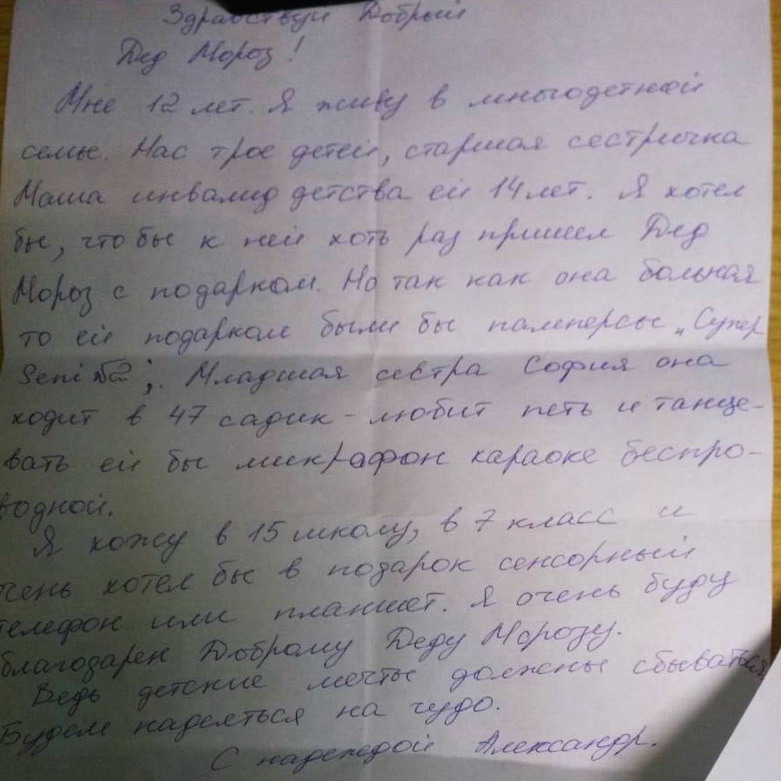 Здравствуй Добрый
Дед Мороз!
Мне 12 лет. Я живу в многодетной
семье. Нас трое детей, старшая сестричка
Маша инвалид детства ей 14 лет. Я хотел
бы, что бы к ней хоть раз пришел Дед
Мороз с подарком. Но так как она больная
то ей подарком были бы памперсы „Супер
Seni №2„. Младшая сестра София она
ходит в 47 садик - любит петь и танце-
вать ей бы микрафон караоке беспро-
водной.
Я хожу в 15 школу, в 7 класс и
очень хотел бы в подарок сенсорный
телефон или планшет. Я очень буду
благодарен Доброму Деду Морозу.
Ведь детские мечты должны сбываться
Будем надеяться на чудо.
С надеждой Александр.